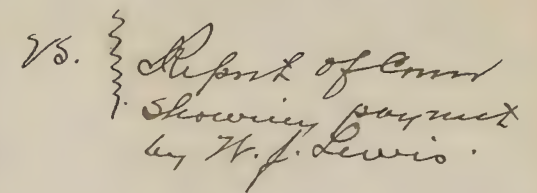 vs. Report of Comr
showing payment
by W. J. Lewis.